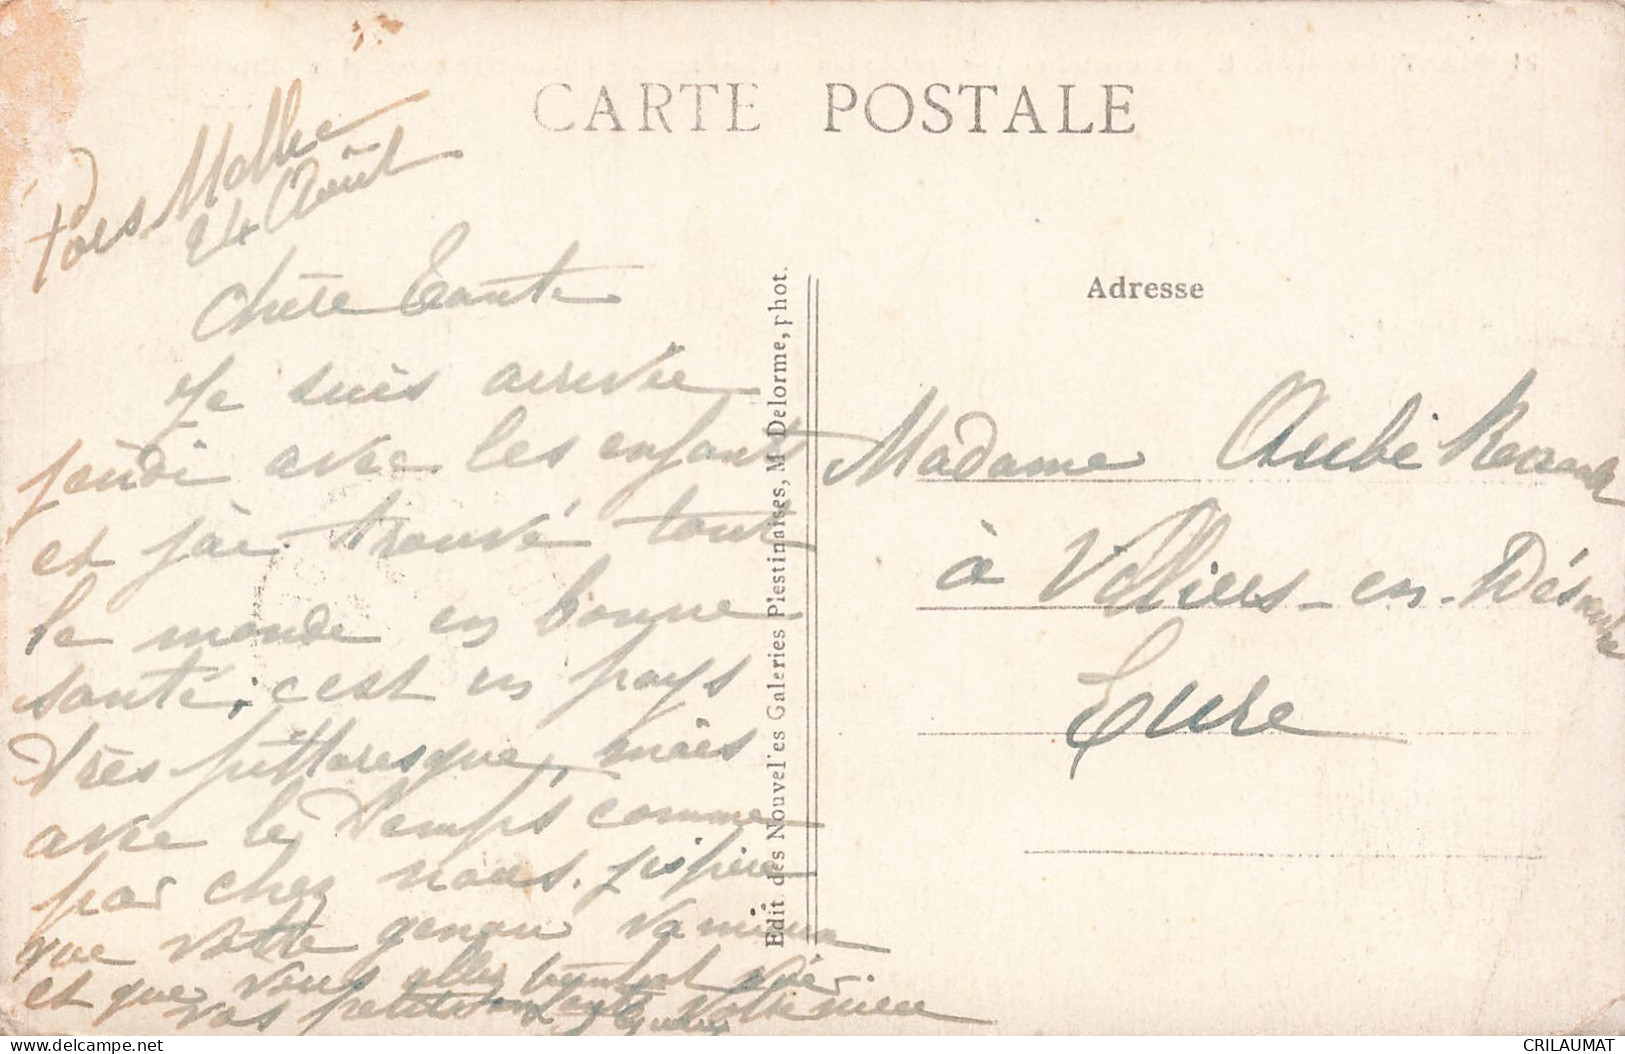 CARTE POSTALE
24 Août
Chère Tante
Je suis arrivée
jeudi avec les enfants
et j'ai trouvé tout
le monde en bonne
santé, c'est un pays
très pittoresque, mais
avec le temps comme
par chez nous. j'espère
que votre genou va mieux
et que vous allez bientôt
vos petits
Edit. des Nouvel'es Galeries Plestinaises, M Delorme, phot.
Adresse
Madame Aubé
à Villiers-en-Désœuvre
Eure
CRILAUMAT